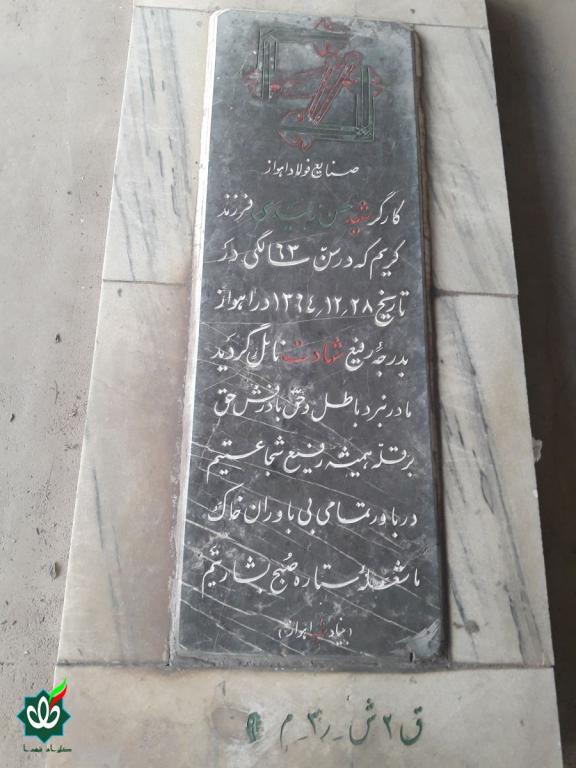 صنایع فولاد اهواز
کارگر شهید حسن فرزند
کریم که در سن ٦٣ سالگی در
تاریخ ١٣٦٤٫١٢٫٢٨ در اهواز
بدرجهٔ رفیع شهادت نائل گردید
ما در نبرد باطل و حق با درفش حق
بر قلهٔ همیشه رفیع شجاعتیم
در باور تمامی بی باوران خاک
ما شعله ستاره صبح بشارتیم
(بنیاد شهید اهواز)
ق ٢ ش ـ ر ٣ ـ م ٩